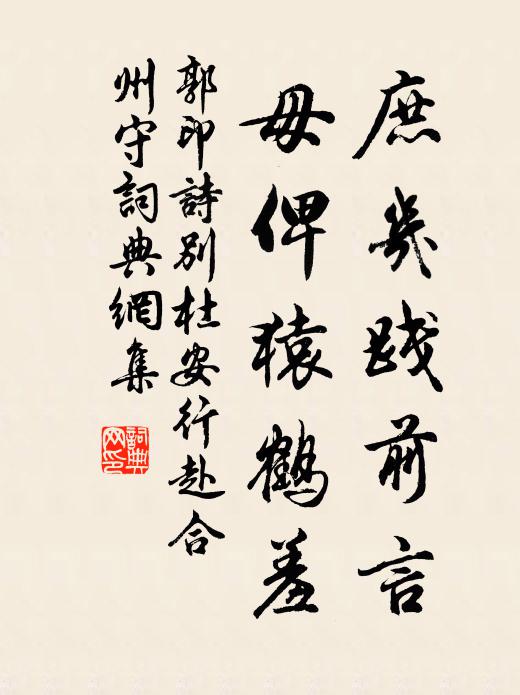 庶幾踐前言
毋俾猿鶴羞
郭印詩別杜安行赴合
州守詞典網集
詞典網印